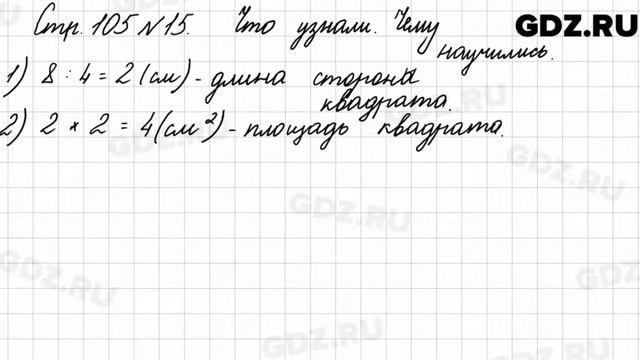 Стр. 105 №15. Что узнали. Чему GDZ.RU
научились.
1) 8 : 4 = 2 (см) - длина стороны
квадрата.
2) 2 * 2 = 4 (см²) - площадь квадрата.
GDZ.RU
GDZ.RU
GDZ.RU
GDZ.RU
GDZ.RU
GDZ.RU